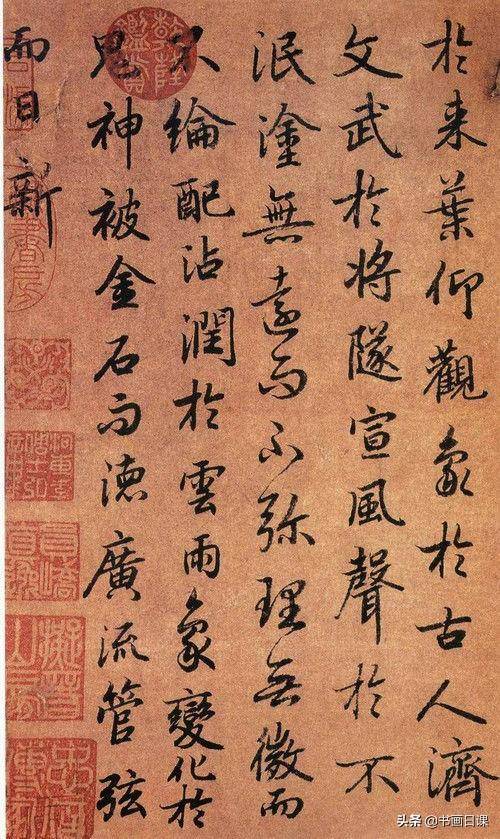 於来葉仰觀象於古人濟
文武於将隊宣風聲於不
泯塗無遠而不弥理無微而
不綸配沾潤於雲雨象變化於
鬼神被金石而德廣流管弦
而日新
乾隆鑑賞
头条 @书画日课